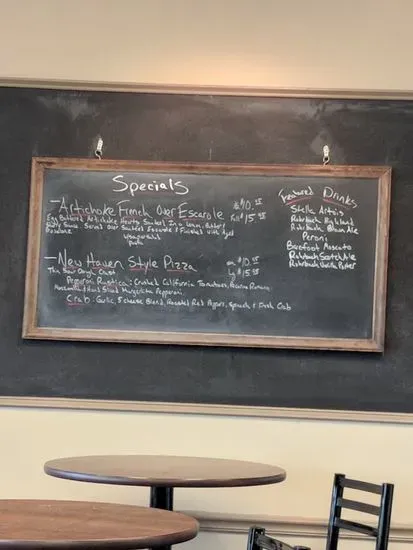 Specials
-Artichoke French Over Escarole
Egg Battered Artichoke Hearts Sautéed In a Lemon, Butter &
Sauce Served Over Sautéed Escarole & Finished with Aged
-New Haven Style Pizza
Thin Sour Dough Crust
Pepperoni Rustica: Crushed California Tomatoes, Pecorino Romano
Mozzarella & Hand Sliced Margherita Pepperoni
Crab: Garlic, 3 cheese Blend, Roasted Red Peppers, Spinach & Fresh Crab
Featured Drinks
Stella Artois
Rohrbach Highland
Rohrbach Blueberry Ale
Peroni
Barefoot Moscato
Rohrbach Scotch Ale
Rohrbach Vanilla Porter